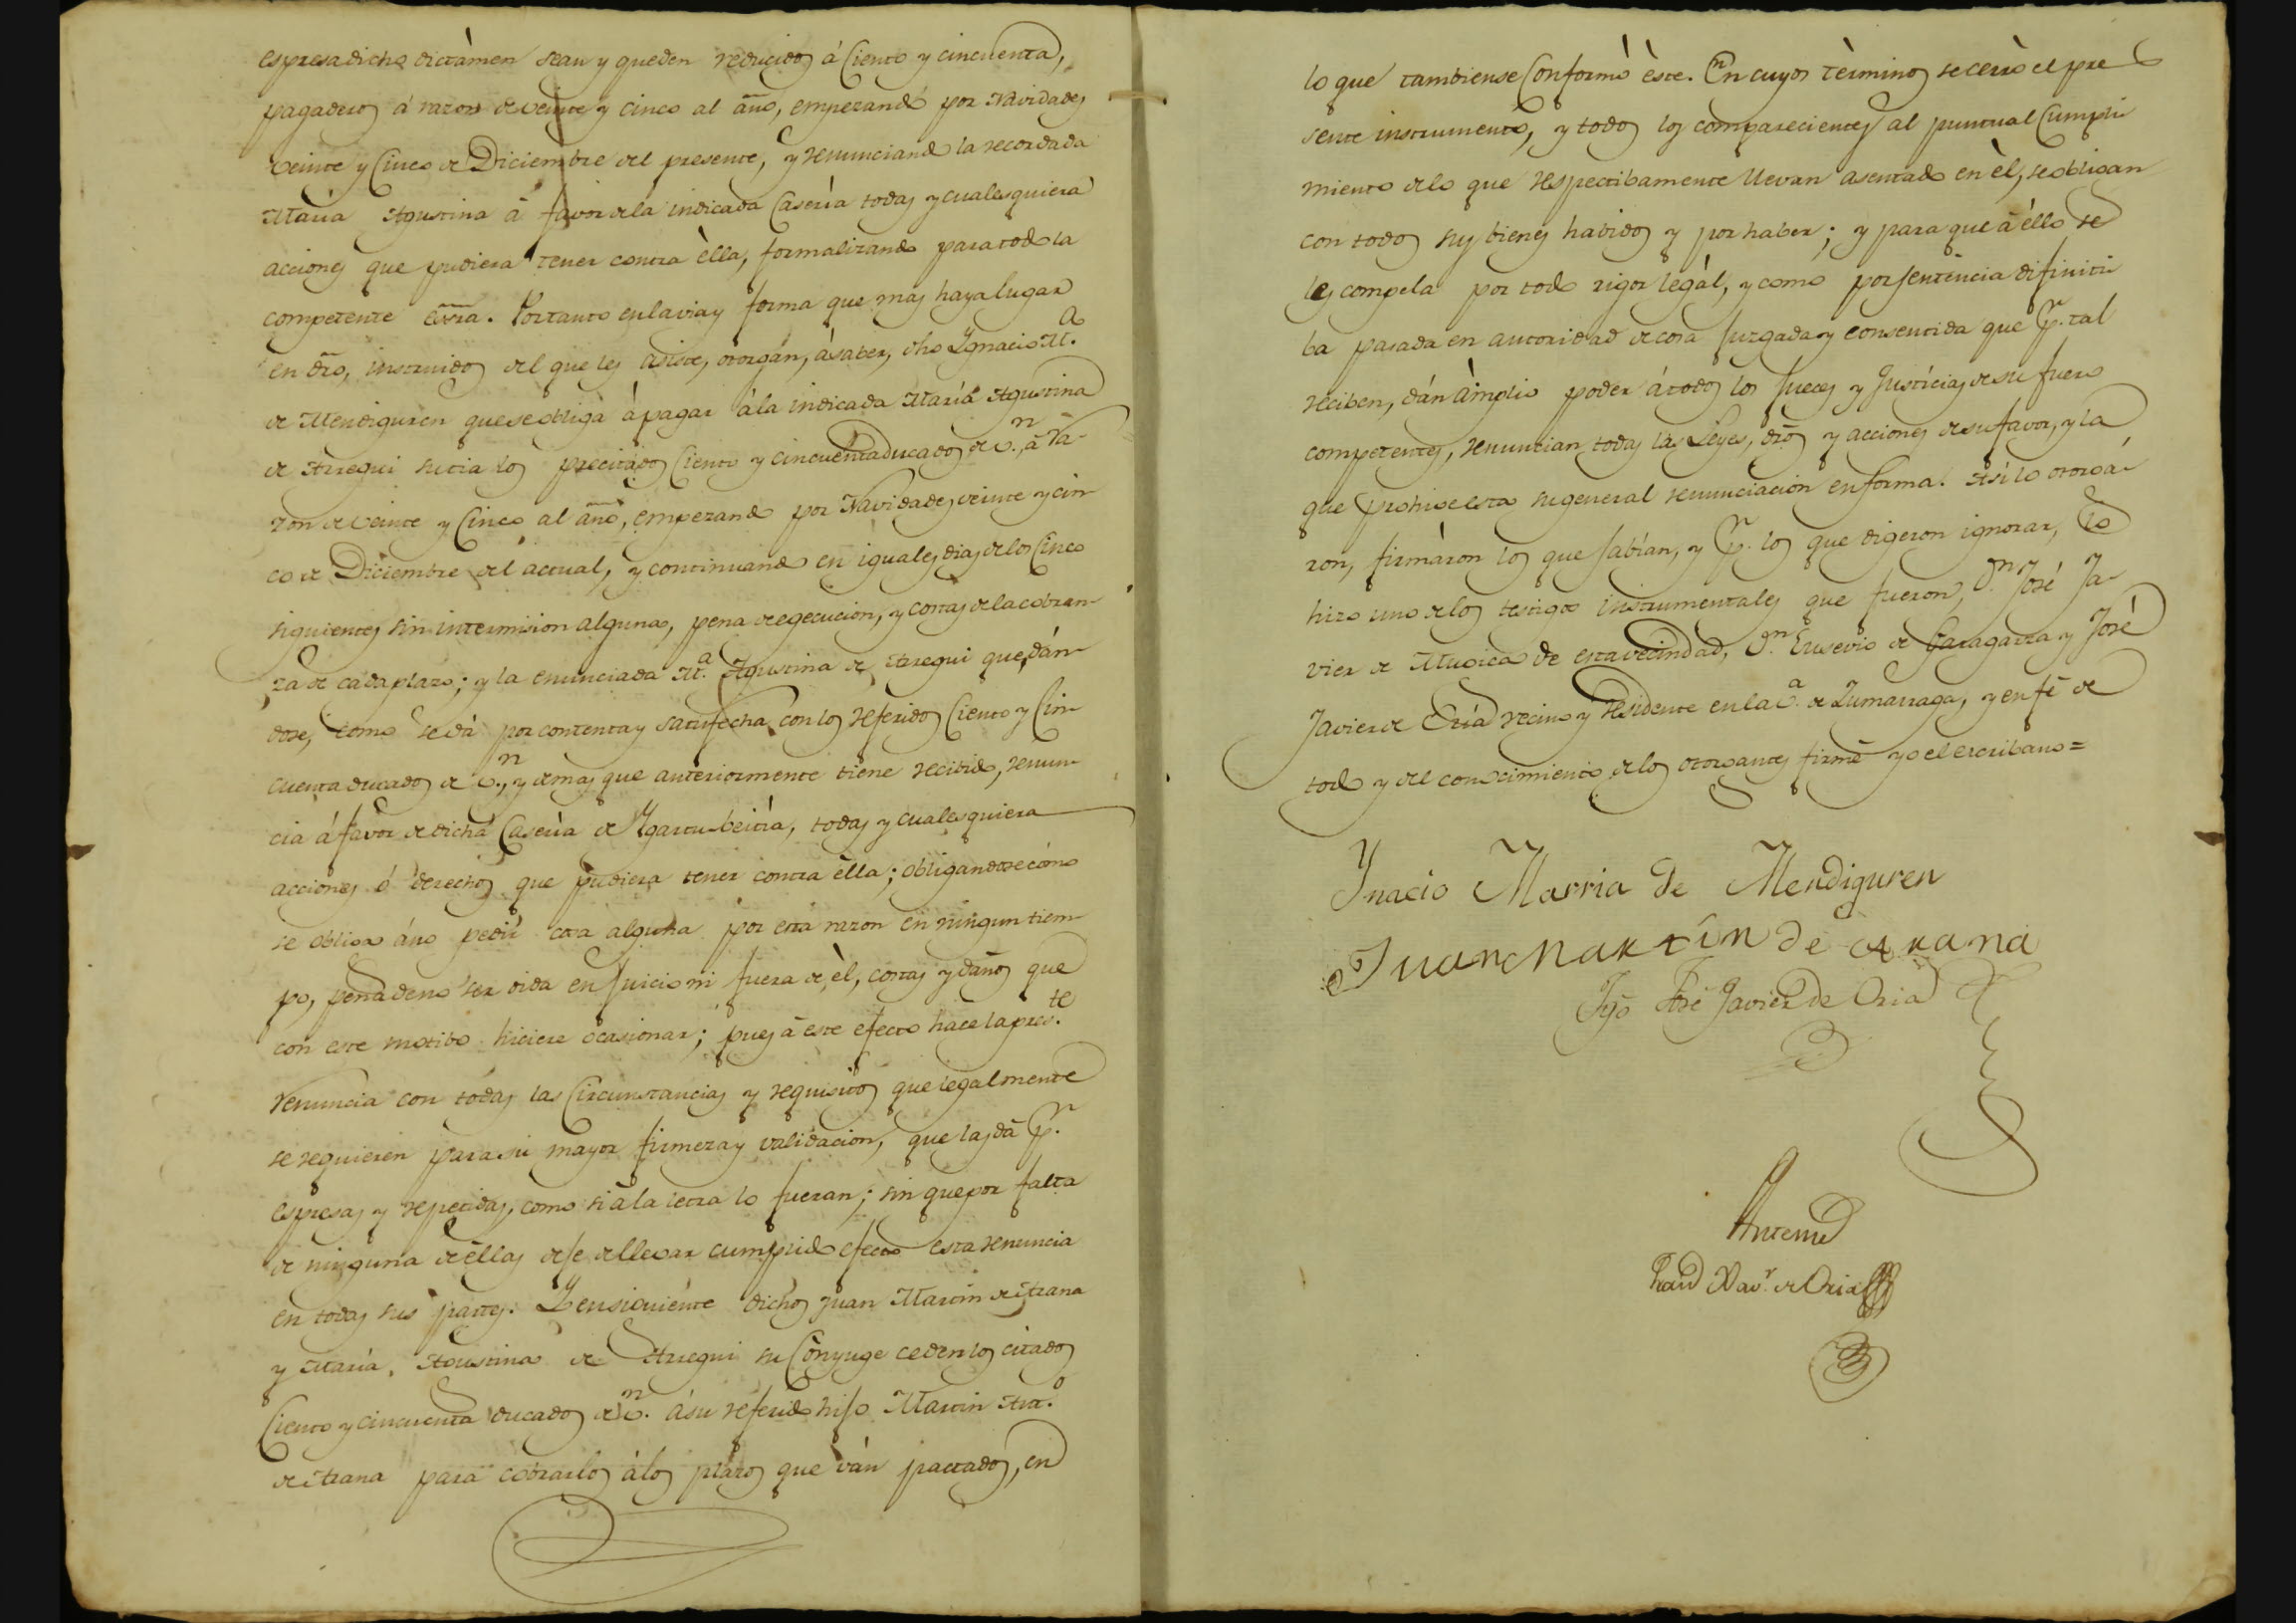 espresa dicho dictàmen sean y queden reducidos á Ciento y cincuenta,
pagaderos á razon de veinte y cinco al año, empezando por Navidades
veinte y Cinco de Diciembre del presente, y renunciando la recordada
Maria Agustina à favor de la indicada Caserìa todas y cualesquiera
acciones que pudiera tener contra èlla, formalizando para todo la
competente escra. Portanto en la via y forma que mas haya lugar
en dro, instruidos del que les asiste, otorgàn, á saber, dho Ygnacio Ma.
de Mendiguren que se obliga à pagar à la indicada Marìa Agustina
de Arregui su tia los precitados Ciento y cincuenta ducados de vn. à ra-
zon de veinte y Cinco al año, empezando por Navidades veinte y cin
co de Diciembre del actual, y continuando en iguales dias de los Cinco
siguientes sin intermision alguna, pena de egecucion, y costas de la cobran-
za de cada plazo; y la enunciada Ma. Agustina de Arregui que, dán-
dose, como se dá por contenta y satisfecha con los referidos Ciento y Cin
cuenta ducados de vn., y demas que anteriormente tiene recibido, renun-
cia á favor de dicha Caserìa de Ygartubeitia, todas y cualesquiera
acciones ó derechos que pudiera tener contra èlla; obligandose cómo
se obliga áno pedir cosa alguna por esta razon en ningun tiem-
po, pena de no ser oida en Juicio ni fuera de èl, costas y daños que
con este motibo hiciere ocasionar; pues à este efecto hace la preste.
renuncia con todas las Circunstancias y requisitos que legalmente
se requieren para su mayor firmeza y validacion, que las dá pr.
espresas y repetidas, como si à la letra lo fueran; sin que por falta
de ninguna de èllas deje de llevar cumplido efecto esta renuncia
en todas sus partes. Y ensiguiente dichos Juan Martin de Arana
y Maria Agustina de Arregui su Cònyuge ceden los citados
Ciento y cincuenta ducados de vn. á su referido hijo Martin Anto.
de Arana para cobrarlos à los plazos que ván pactados, en
lo que tambien se Conformó èste. En cuyos tèrminos se cerró el pre
sente instrumento, y todos los comparecientes al puntual Cumpli
miento de lo que respectibamente llevan asentado en èl, se obligan
con todos sus bienes habidos y por haber; y para que à èllo se
les compela por todo rigor legàl, y como por sentencia difiniti
ba pasada en autoridad de cosa Juzgada y consentida que pr. tal
reciben, dán àmplio poder á todos los Jueces y Justicias de su fuero
competentes, renuncian todas las Leyes, dros y acciones de su favor, y la
que prohive esta su general renunciacion en forma. Asi lo otorga-
ron, firmàron los que sabían, y pr. los que digeron ignorar, lo
hizo uno de los testigos instrumentales que fueron, Dn. José Ja-
vier de Mugica de esta vecindad, Dn. Eusevio de Garagarza y José
Javier de Oria vecino y residente en la va. de Zumarraga, y en fé de
todo y del conocimiento de los otorgantes firmé yo el escribano =
Ynacio Marria de Mendiguren
Juan Martin de Arana
Tgo José Javier de Oria
Antemi